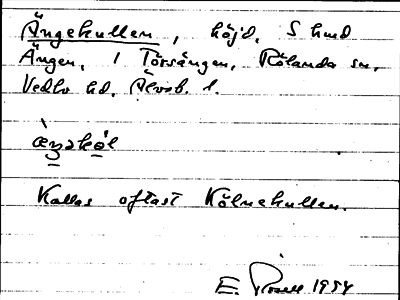 Ängekullen, höjd, S hmd
Ängen, 1 Torsängen, Rölanda sn,
Vedbo hd, Älvsb. l.
Kallas oftast Kölnekullen.
E. Rosell 1954